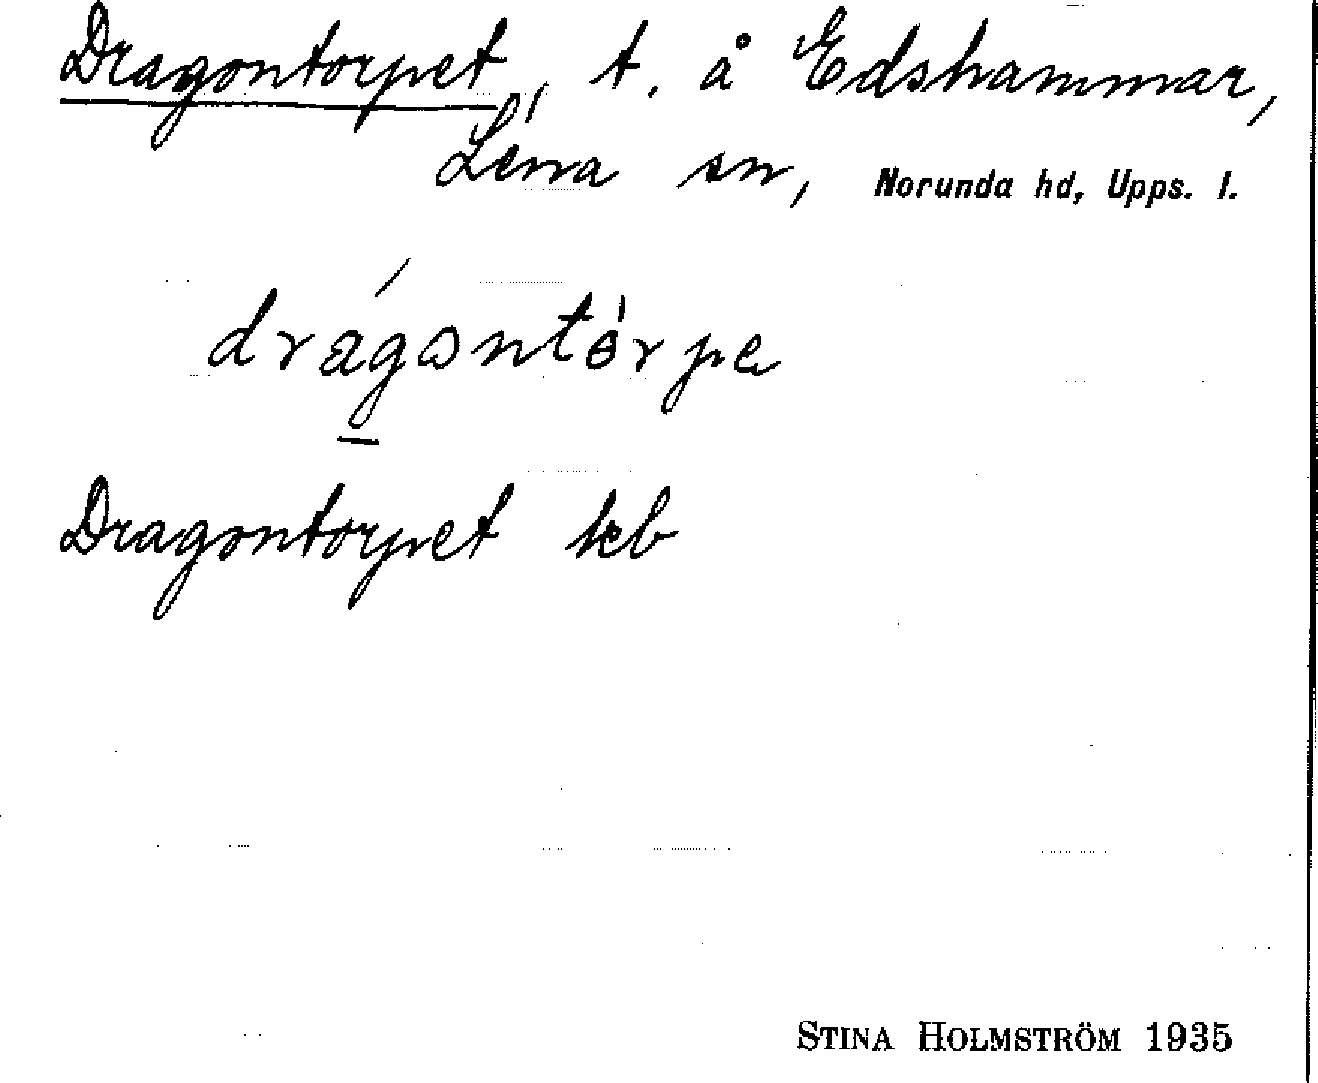 Dragontorpet, t. å Edshammar,
Léna sn, Norunda hd, Upps. l.
dragontòrpe
Dragontorpet kb
STINA HOLMSTRÖM 1935